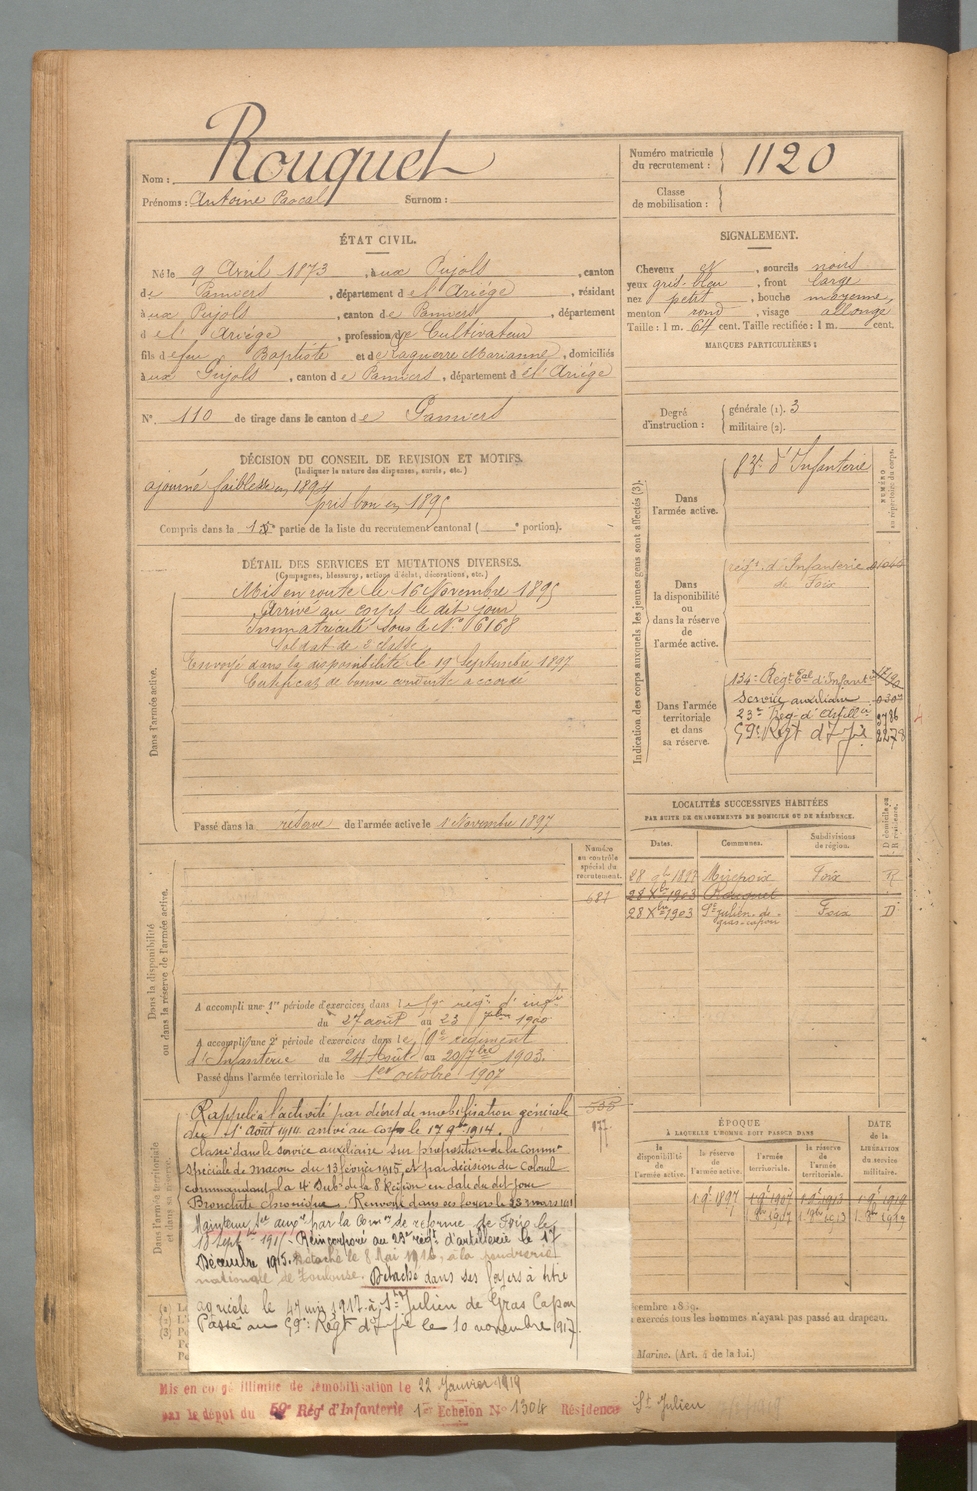 Nom : Rouquet
Prénoms : Antoine Pascal Surnom :
Numéro matricule du recrutement : 1120
Classe de mobilisation :
ÉTAT CIVIL.
Né le 9 Avril 1873, à ux Pujols, canton
de Pamiers, département de l'Ariège, résidant
à ux Pujols, canton de Pamiers, département
de l'Ariège, profession de Cultivateur
fils de feu Baptiste et de Laguerre Marianne, domiciliés
à ux Pujols, canton de Pamiers, département de l'Ariège
N° 110 de tirage dans le canton de Pamiers
SIGNALEMENT.
Cheveux et, sourcils noirs
yeux gris-bleu, front large
nez petit, bouche moyenne,
menton rond, visage allongé
Taille : 1 m. 64 cent. Taille rectifiée : 1 m. cent.
MARQUES PARTICULIÈRES :
Degré d'instruction : générale (1). 3
militaire (2).
DÉCISION DU CONSEIL DE REVISION ET MOTIFS.
(Indiquer la nature des dispenses, sursis, etc.)
ajourné faiblesse en 1894
pris bon en 1895
Compris dans la 1re partie de la liste du recrutement cantonal ( e portion).
DÉTAIL DES SERVICES ET MUTATIONS DIVERSES.
(Campagnes, blessures, actions d'éclat, décorations, etc.)
Dans l'armée active.
Mis en route le 16 Novembre 1895
Arrivé au corps le dit jour
Immatriculé sous le N° 6168
Soldat de 2e classe
Envoyé dans la disponibilité le 19 Septembre 1897
Certificat de bonne conduite accordé
Passé dans la réserve de l'armée active le 1 Novembre 1897
Indication des corps auxquels les jeunes gens sont affectés (3).
NUMÉRO au répertoire du corps.
Dans l'armée active.
83e d'Infanterie
Dans la disponibilité ou dans la réserve de l'armée active.
régt d'Infanterie
de Foix
Dans l'armée territoriale et dans sa réserve.
134e Régt Eal d'Infant
Service auxiliaire
23e Rég. d'Artillie 3786
59e Régt d'Inf ie 2278
LOCALITÉS SUCCESSIVES HABITÉES
PAR SUITE DE CHANGEMENTS DE DOMICILE OU DE RÉSIDENCE.
Dates. Communes. Subdivisions de région. D domicile ou R résidence.
28 9bre 1897 Mirepoix Foix R
28 Xbre 1903 Rouquet
28 Xbre 1903 St Julien-de-gras-capou Foix D
Dans la disponibilité ou dans la réserve de l'armée active.
Numéro au contrôle spécial du recrutement.
687
A accompli une 1re période d'exercices dans le 59e régt d'infie
du 27 août au 23 7bre 1900
A accompli une 2e période d'exercices dans le régiment
d'Infanterie du 24 Août au 20 7bre 1903.
Passé dans l'armée territoriale le 1er octobre 1907
Dans l'armée territoriale et dans
Rappelé à l'activité par décret de mobilisation générale
du 1er Août 1914 arrivé au corps le 17 9bre 1914.
Classé dans le service auxiliaire sur proposition de la Common
spéciale de Macon du 13 février 1915, et par décision du Colonel
commandant la 4e Subon de la 8e Région en date du dit jour
Bronchite chronique. Renvoyé dans ses foyers le 23 mars 1915
Maintenu Sce auxre par la Comon de réforme de Foix le
18 Septbre 1915 - Réincorporé au 23e régt d'artillerie le 17
Décembre 1915. Détaché le 8 Mai 1916, à la poudrerie
nationale de Toulouse. Détaché dans ses foyers à titre
agricole le 1917 à St Julien de Gras Capou
Passé au 59e Régt d'Inf ie le 10 novembre 1917.
ÉPOQUE
À LAQUELLE L'HOMME DOIT PASSER DANS
la disponibilité de l'armée active. la réserve de l'armée active. l'armée territoriale. la réserve de l'armée territoriale.
DATE de la LIBÉRATION du service militaire.
1 9bre 1897 1 9bre 1907 1 9bre 1913 1 9bre 1919
écembre 1889.
exercés tous les hommes n'ayant pas passé au drapeau.
Marine. (Art. 4 de la loi.)
Mis en congé illimité de démobilisation le 22 Janvier 1919
par le dépôt du 59e Régt d'Infanterie 1er Echelon N° 1304 Résidence St Julien